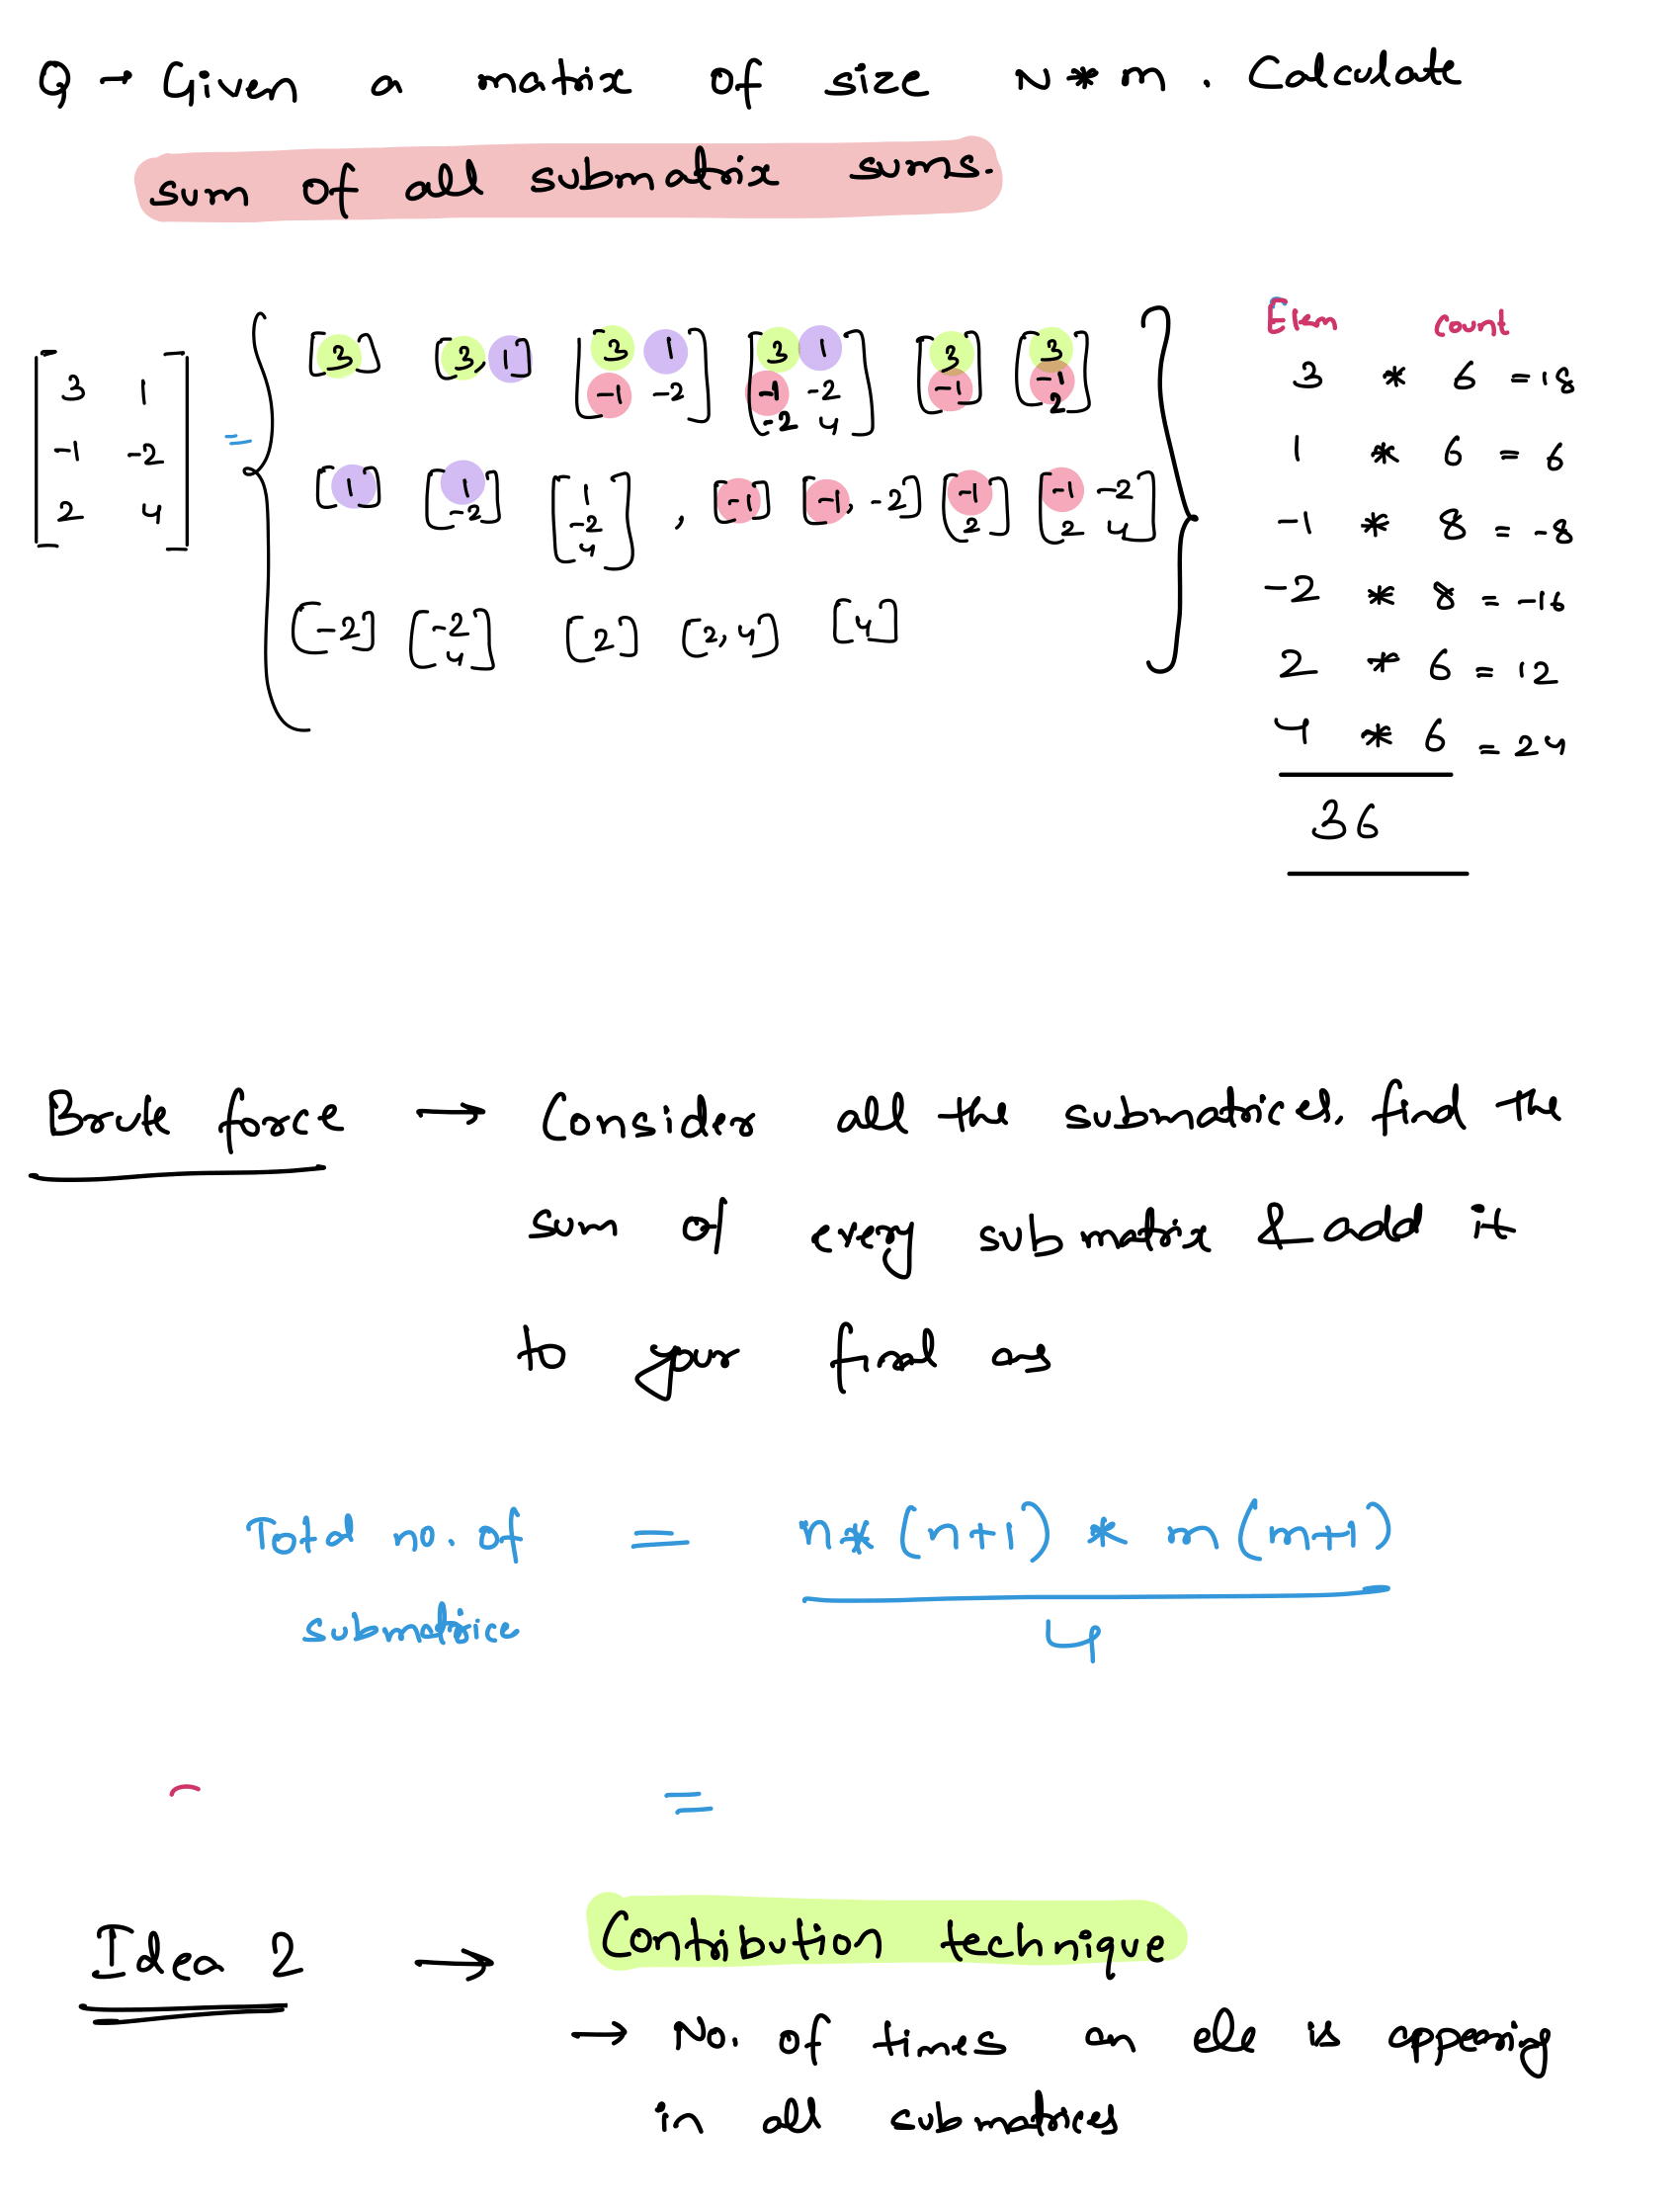 Q → Given a matrix of size N * m . Calculate
sum of all submatrix sums.
Elem count
[3] [3, 1] [3 1 [3 1 [3 [3
3 1 -1 -2] -1 -2 -1] -1 3 * 6 = 18
-2 4] 2]
-1 -2 = [1] [1 [1 , [-1] [-1, -2] [-1 [-1 -2 1 * 6 = 6
-2] -2 2] 2 4] -1 * 8 = -8
2 4 4]
[-2] [-2 [2] [2, 4] [4] -2 * 8 = -16
4] 2 * 6 = 12
4 * 6 = 24
36
Brute force → Consider all the submatrices. find the
sum of every submatrix & add it
to your final as
Total no. of = n* (n+1) * m (m+1)
submatrice 4
=
Idea 2 → Contribution technique
→ No. of times an ele is appearing
in all submatrices